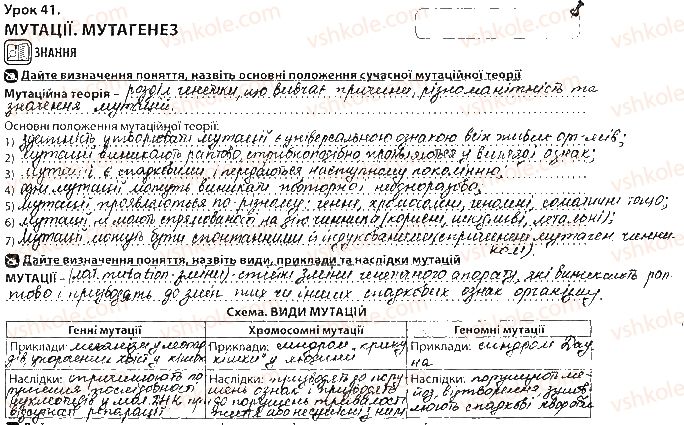 Урок 41.
МУТАЦІЇ. МУТАГЕНЕЗ
ЗНАННЯ
Дайте визначення поняття, назвіть основні положення сучасної мутаційної теорії
Мутаційна теорія – розділ генетики, що вивчає причини, різноманітність та
значення мутацій.
Основні положення мутаційної теорії:
1) здатність утворювати мутації є універсальною ознакою всіх живих орг-мів;
2) мутації виникають раптово, стрибкоподібно проявляються у вигляді ознак;
3) мутації є спадковими і передаються наступному поколінню
4) одні мутації можуть виникати повторно і неодноразово;
5) мутації проявляються по різному: генні, хромосомні, геномні, соматичні тощо;
6) мутації не мають спрямованості на дію чинника (корисні, шкідливі, летальні);
7) мутації можуть бути спонтанними й індукованими (спричинені мутаген. чинни-
ками).
Дайте визначення поняття, назвіть види, приклади та наслідки мутацій
МУТАЦІЇ – (лат. mutatio - зміни) - стійкі зміни генетичного апарату, які виникають рап-
тово і призводять до змін тих чи інших спадкових ознак організму.
Схема. ВИДИ МУТАЦІЙ
Генні мутації Хромосомні мутації Геномні мутації
Приклади: Приклади: синдром „крику Приклади: синдром Дау-
кішки" у людини на
Наслідки: спричиняють по- Наслідки: призводять до пору- Наслідки: порушують ме-
рушення послідовності шень ознак і призводять йоз, утворення
нуклеотидів у мол. ДНК при до порушень тривалості юють спадкові хвороби
відсутності репарації життя або несумісні з ним